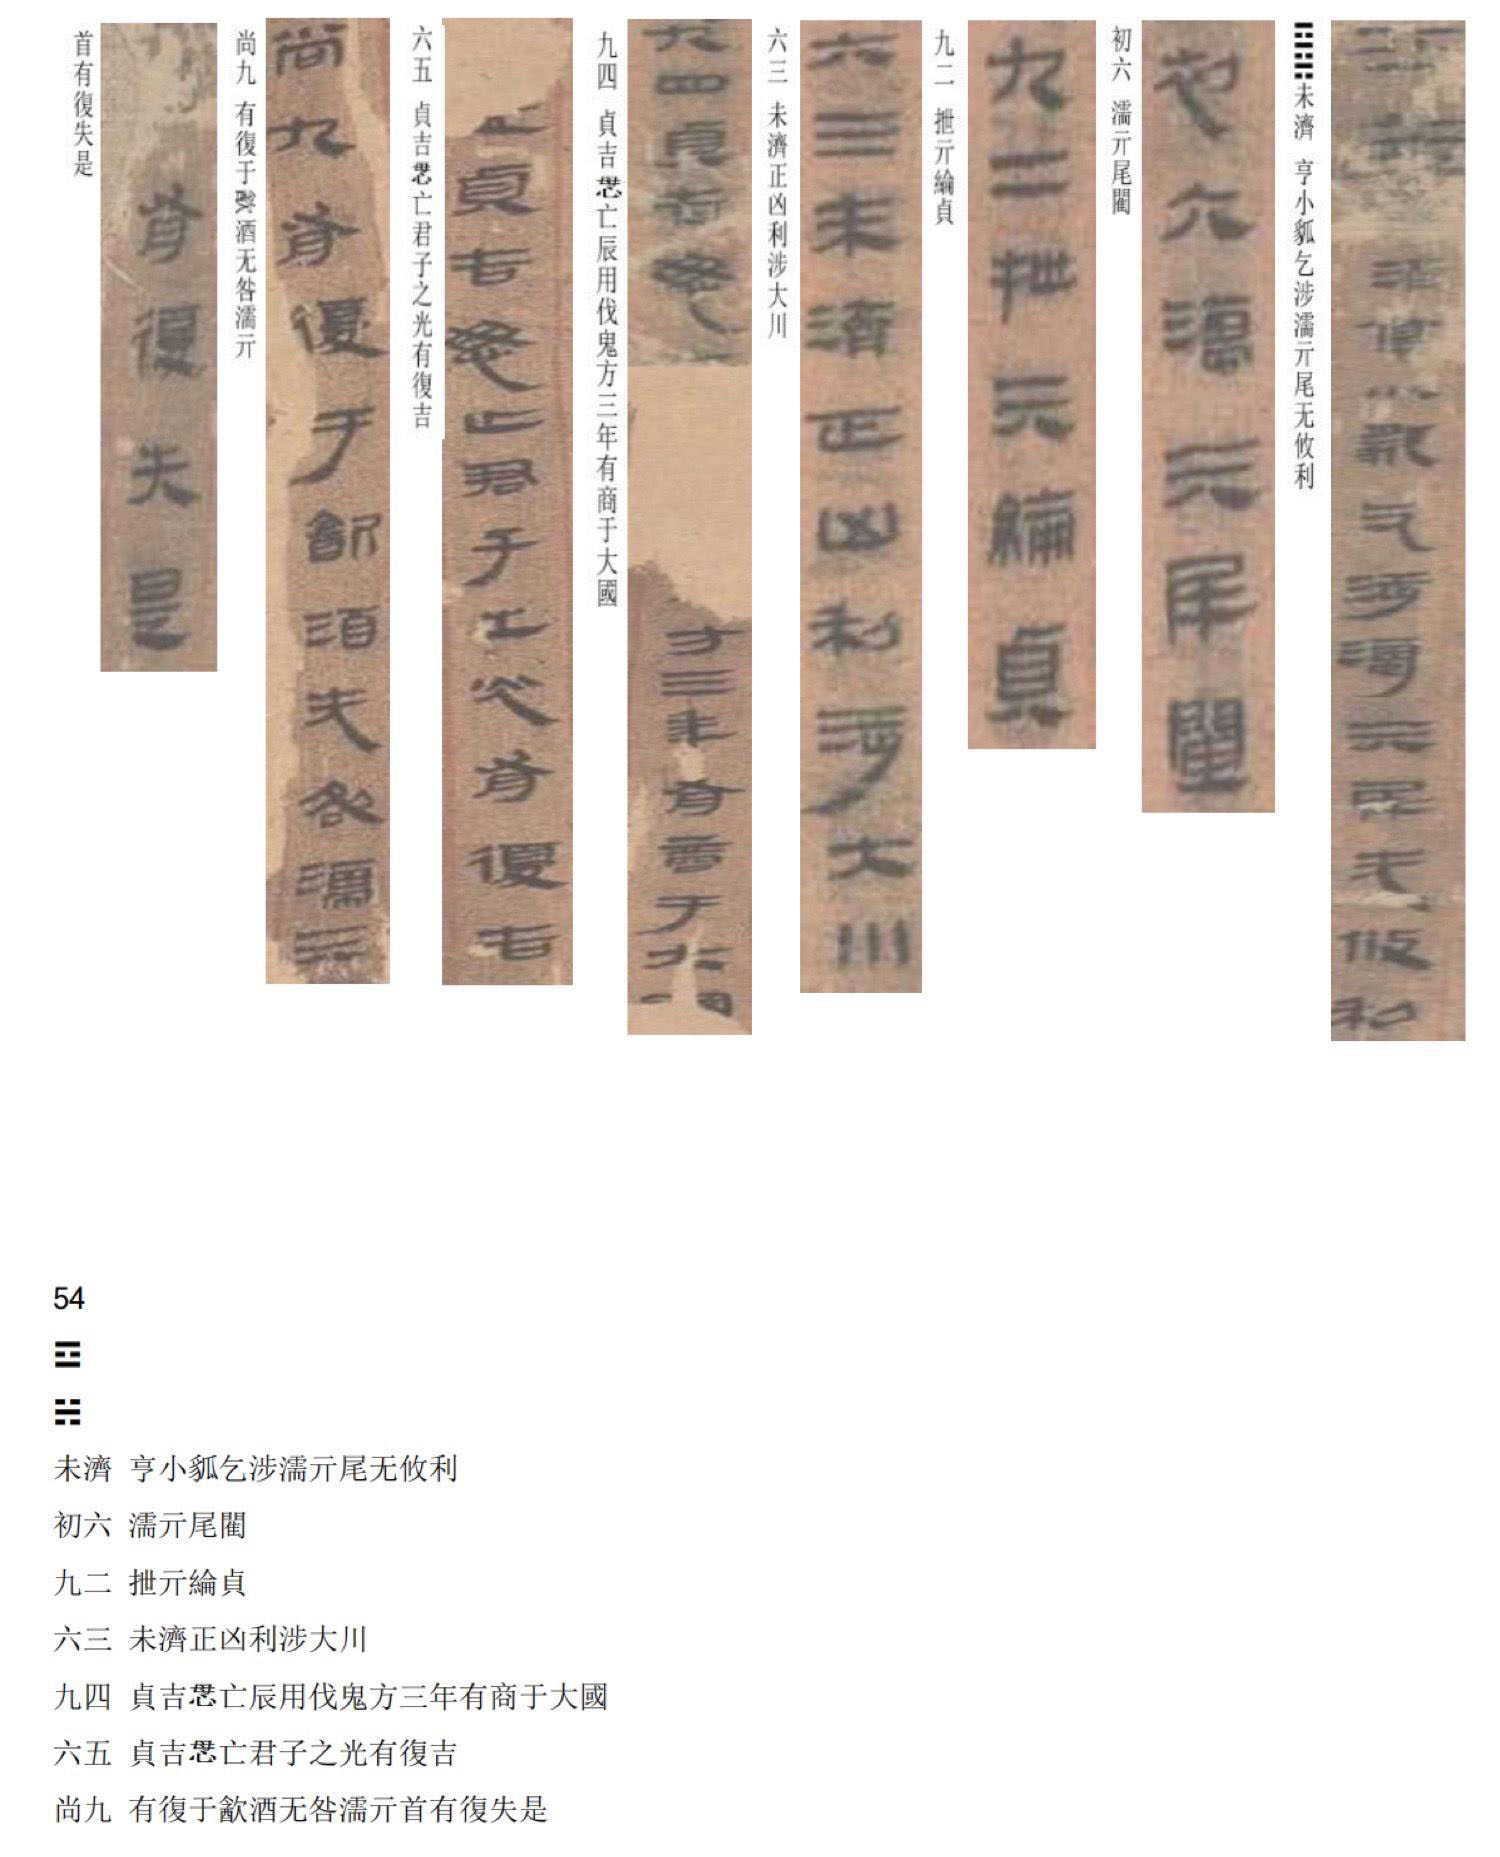 ䷿未濟 亨小狐乞涉濡亓尾无攸利
初六 濡亓尾閵
九二 抴亓綸貞
六三 未濟正凶利涉大川
九四 貞吉亡辰用伐鬼方三年有商于大國
六五 貞吉亡君子之光有復吉
尚九 有復于酒无咎濡亓
首有復失是
54
☲
☵
未濟 亨小狐乞涉濡亓尾无攸利
初六 濡亓尾閵
九二 抴亓綸貞
六三 未濟正凶利涉大川
九四 貞吉亡辰用伐鬼方三年有商于大國
六五 貞吉亡君子之光有復吉
尚九 有復于歙酒无咎濡亓首有復失是